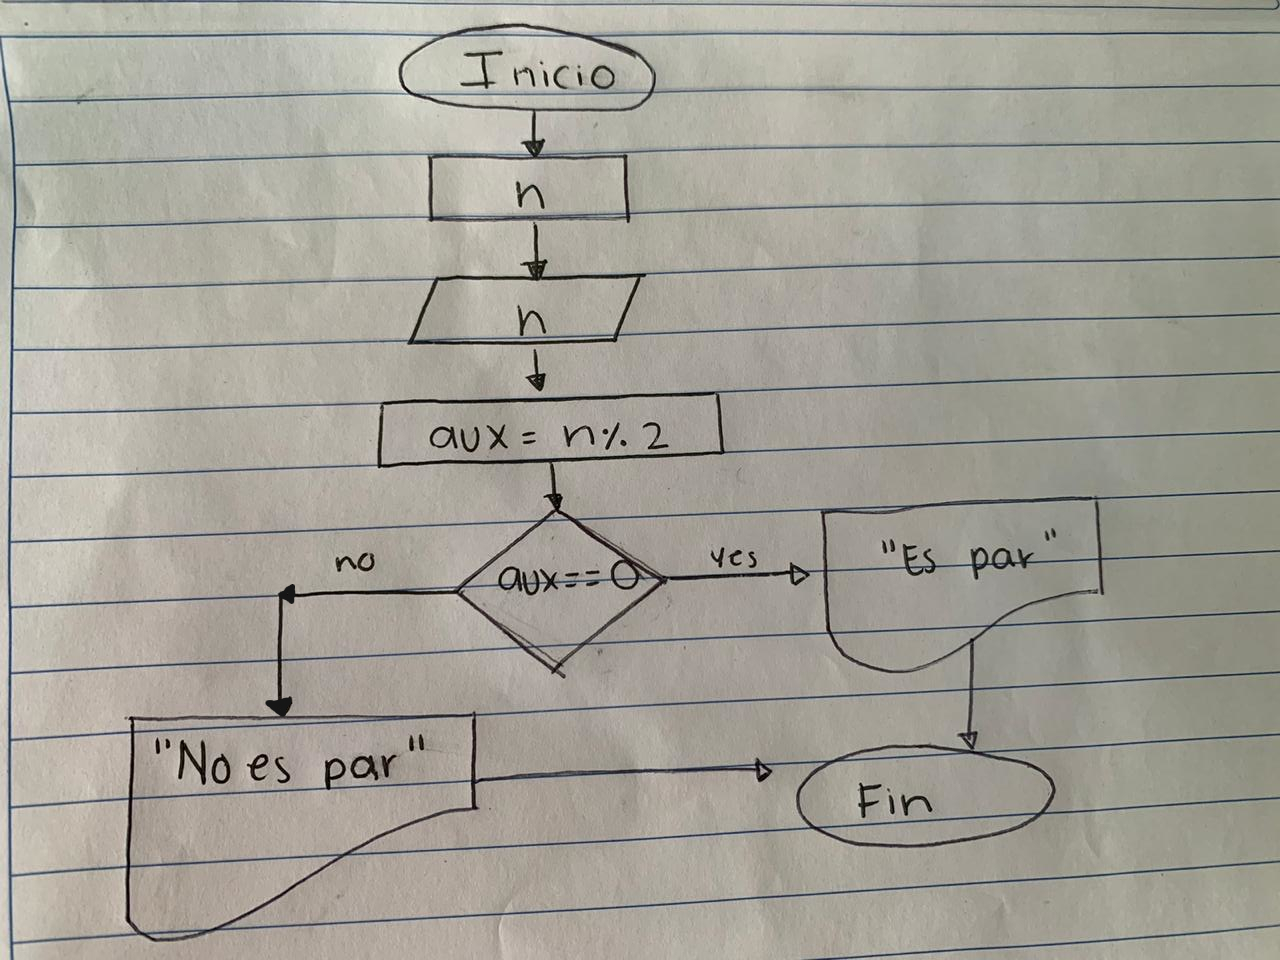 Inicio
n
n
aux = n % 2
aux == 0
no
yes
"Es par"
"No es par"
Fin